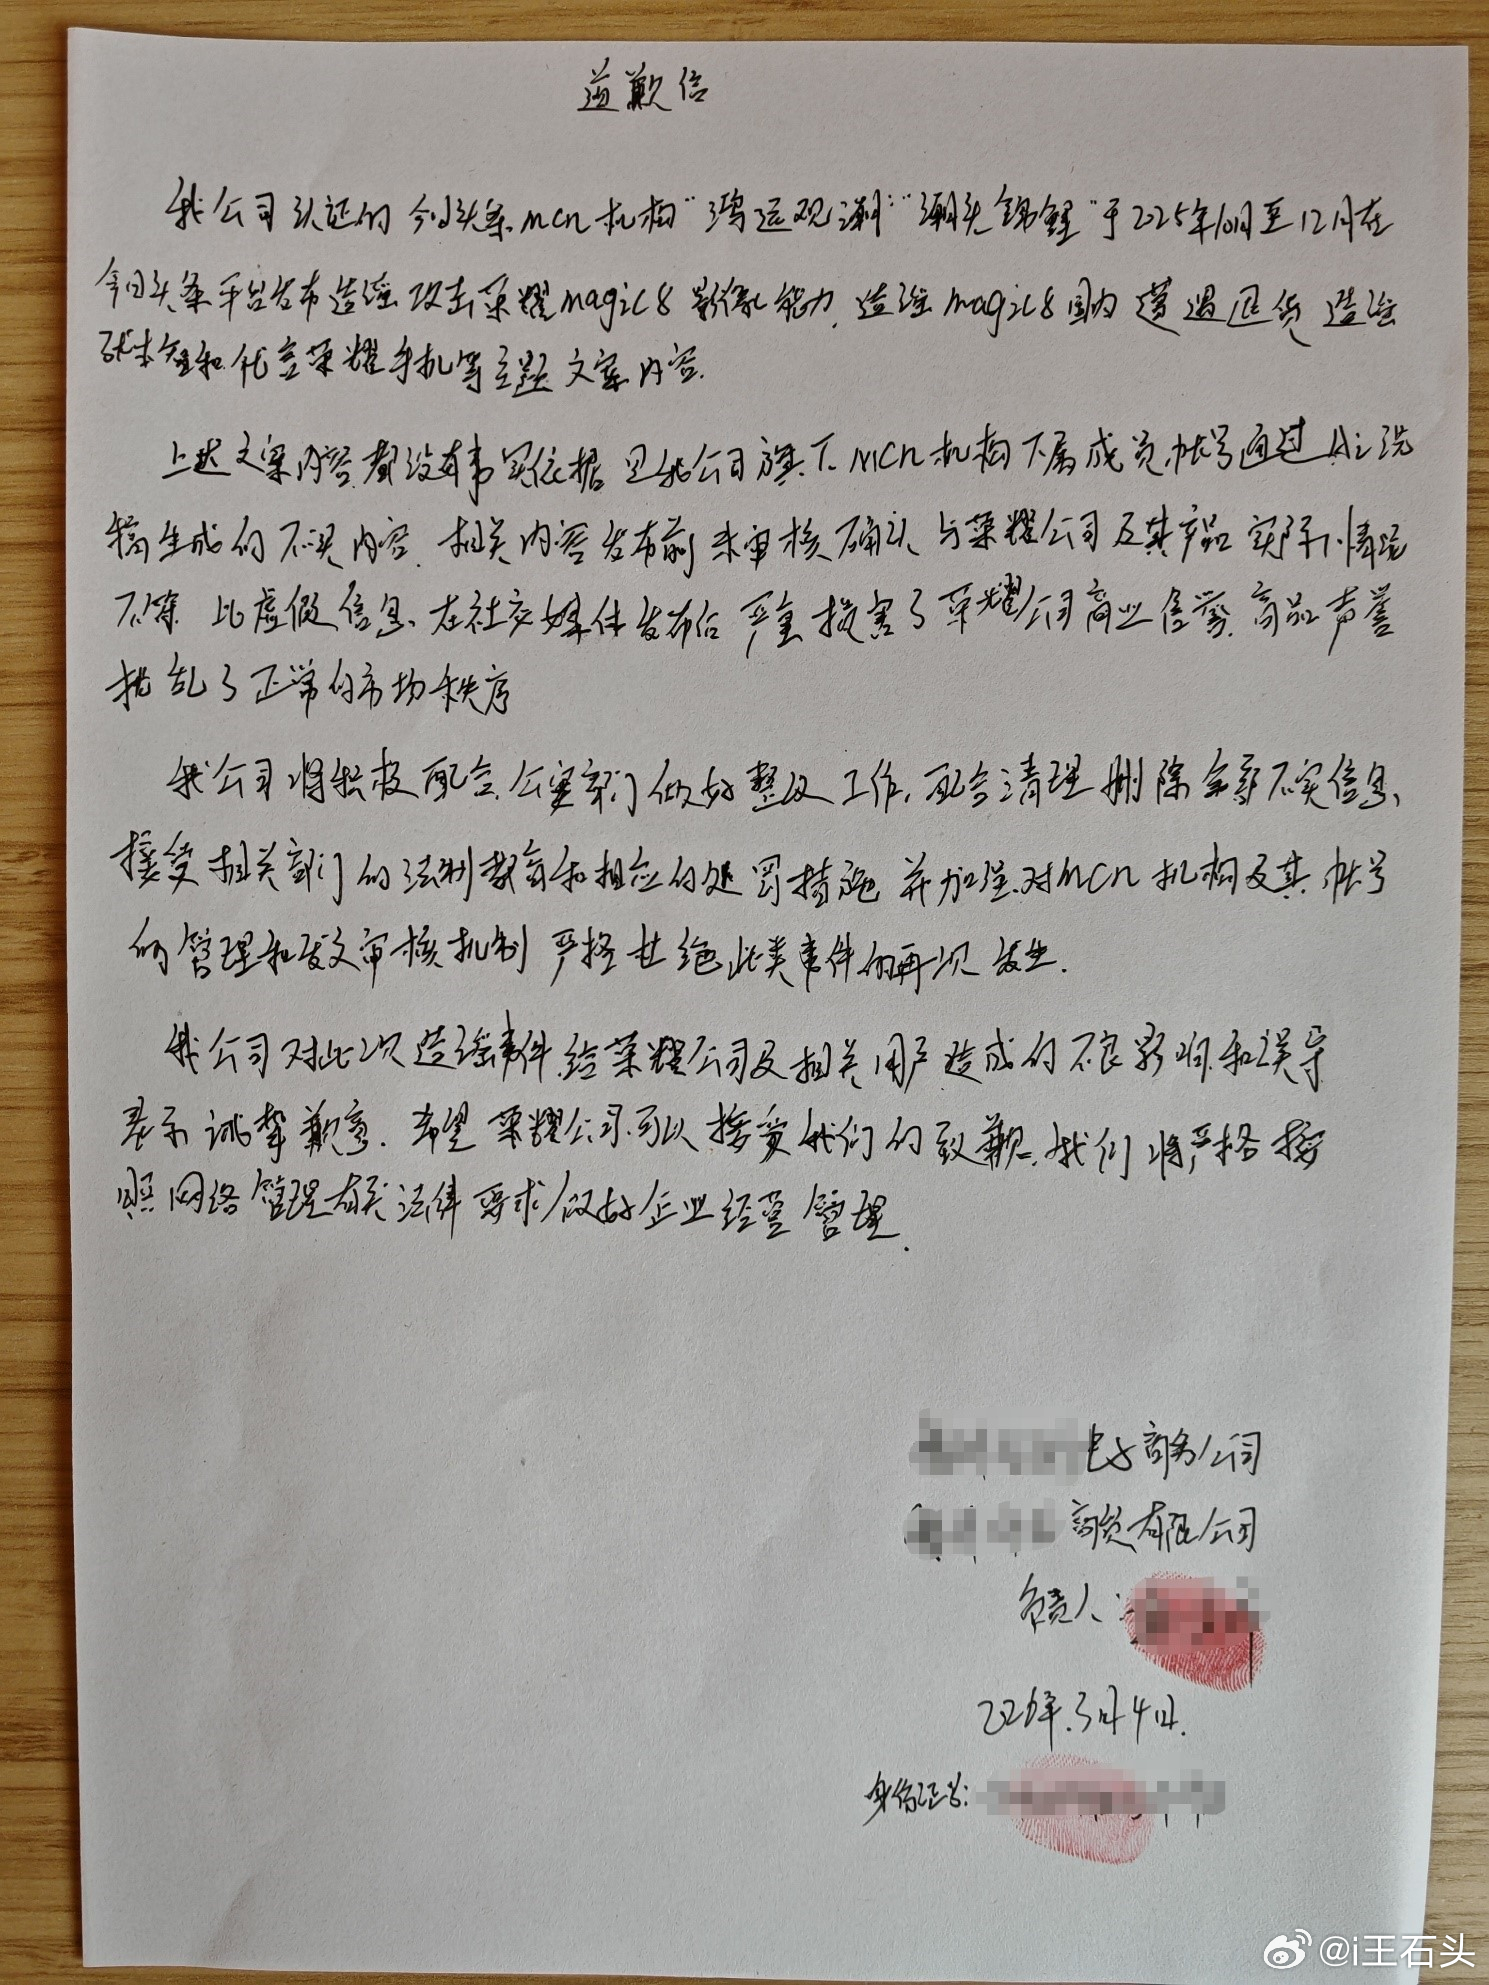 道歉信
我公司认证的今日头条mcn机构"鸿运观潮""潮头锦鲤"于2025年10月至12月在
今日头条平台发布造谣攻击荣耀magic8影像能力,造谣magic8国内遭遇退货 造谣
和代言荣耀手机等主题文案内容.
上述文案内容都没有事实依据 是我公司旗下MCn机构下属成员帐号通过Ai洗
稿生成的不实内容.相关内容发布前未审核确认 与荣耀公司及其产品实际情况
不符 此虚假信息、在社交媒体发布后 严重损害了荣耀公司商业信誉、商品声誉
扰乱了正常的市场秩序
我公司将积极配合公安部门做好整改工作,配合清理删除全部不实信息、
接受相关部门的法制教育和相应的处罚措施 并加强对mcn机构及其帐号
的管理和发文审核机制 严格杜绝此类事件的再次发生.
我公司对此次造谣事件给荣耀公司及相关用户造成的不良影响和误导
表示诚挚歉意.希望荣耀公司可以接受我们的致歉.我们将严格按
照网络管理有关法律要求做好企业经营管理.
电子商务公司
商贸有限公司
负责人:
2026年.3月4日.
身份证号:
@i王石头